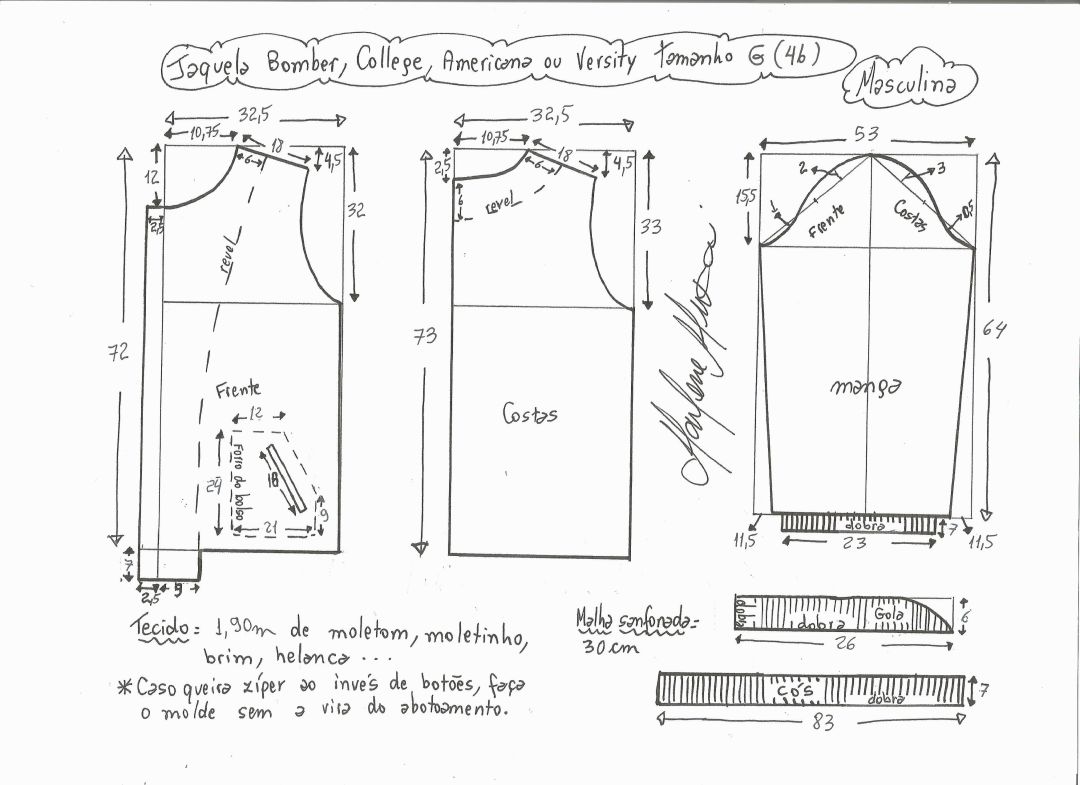 Jaqueta Bomber, College, Americana ou Versity Tamanho G (46)
Masculina
32,5
10,75
18
6
4,5
12
2,5
32
revel
72
Frente
12
Forro do bolso
18
24
21
9
7
2,5
9
32,5
10,75
18
6
4,5
2,5
6
revel
33
73
Costas
53
2
3
15,5
1
0,5
Frente
Costas
64
manga
dobra
7
11,5
23
11,5
Tecido = 1,90m de moletom, moletinho,
brim, helanca ...
* Caso queira zíper ao invés de botões, faça
o molde sem a vira do abotoamento.
Malha sanforada =
30cm
dobra
Gola
dobra
6
26
cós
dobra
7
83